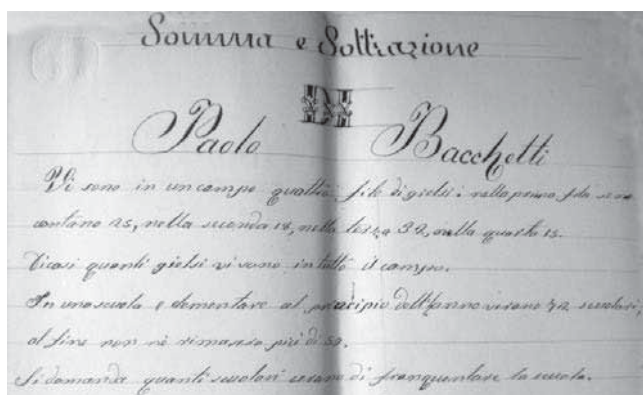 Somma e Sottrazione
DI
Paolo Bacchetti
Vi sono in un campo quattro file di gielsi: nella prima fila se ne
contano 25, nella seconda 18, nella terza 32, nella quarta 15.
Dicasi quanti gielsi vi sono in tutto il campo.
In una scuola elementare al principio dell'anno vi sono 72 scuolari,
al fine non vi rimasero più di 50.
Si domanda quanti scuolari di franquentare la scuola.